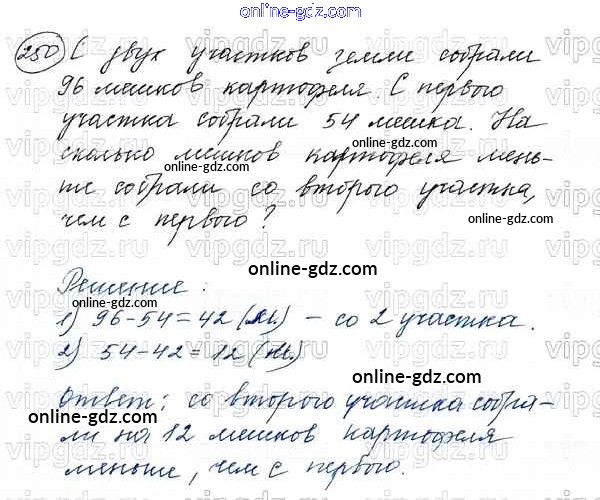 online-gdz.com
250 С двух участков земли собрали
96 мешков картофеля. С первого
участка собрали 54 мешка. На
online-gdz.com
сколько мешков картофеля мень-
ше собрали со второго участка,
чем с первого?
online-gdz.com
online-gdz.com
Решение.
online-gdz.com
1) 96-54=42 (м.) - со 2 участка.
2) 54-42=12 (м.)
online-gdz.com
Ответ: со второго участка собра-
online-gdz.com
ли на 12 мешков картофеля
меньше, чем с первого.
online-gdz.com